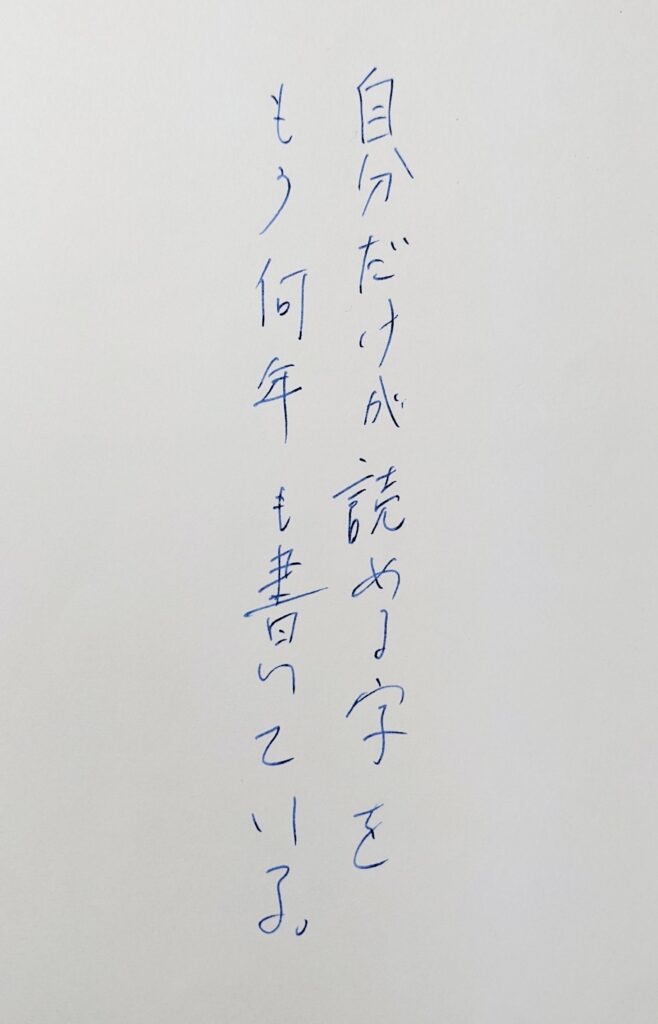 自分だけが読める字を
もう何年も書いている。